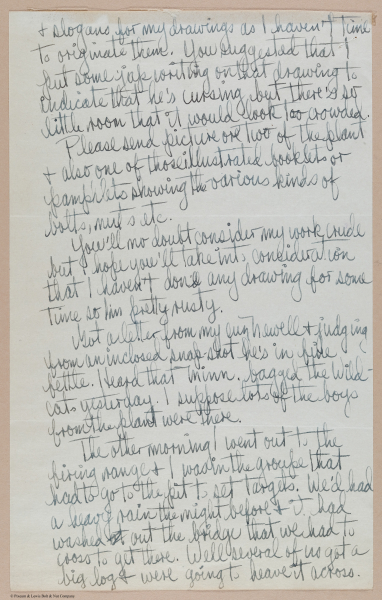 & slogans for my drawings as I haven't time
to originate them. You suggested that I
put some jap writing on that drawing to
indicate that he's cursing but there's so
little room that it would look too crowded.
Please send picture or two of the plant
& also one of those illustrated booklets or
pamphlets showing the various kinds of
bolts, nuts etc.
You'll no doubt consider my work crude
but I hope you'll take into consideration
that I haven't done any drawing for some
time so I'm pretty rusty.
Got a letter from my Newell & judging
from an inclosed snap-shot he's in fine
fettle. Heard that Minn. bagged the Wild-
cats yesterday. I suppose lots of the boys
from the plant were there.
The other morning I went out to the
firing range & I was in the groupe that
had to go to the pit to set targets. We'd had
a heavy rain the night before & it had
washed out the bridge that we had to
cross to get there. Well several of us got a
big log & were going to heave it across.
© Pioneer & Lewis Bolt & Nut Company